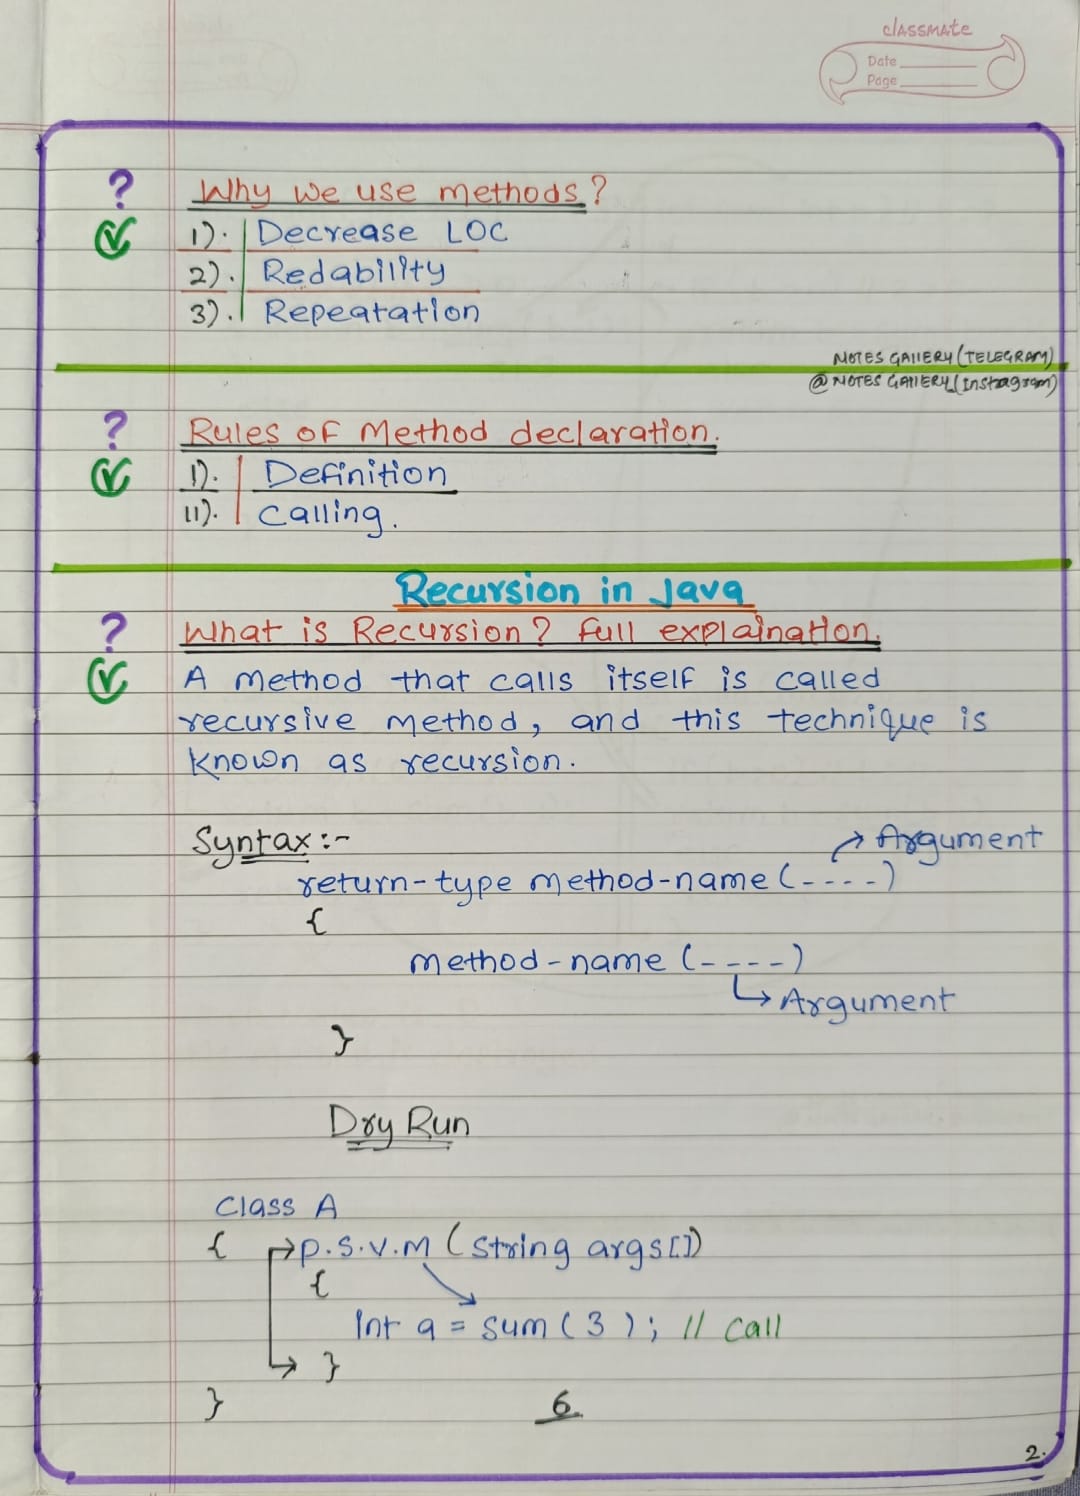 classmate
Date
Page
? Why we use methods?
1). Decrease LOC
2). Redability
3). Repeatation
NOTES GALLERY (TELEGRAM)
@ NOTES GALLERY_(Instagram)
? Rules of Method declaration.
1). Definition
11). Calling.
Recursion in Java
? What is Recursion? Full explaination.
A method that calls itself is called
recursive method, and this technique is
known as recursion.
Syntax :-
→ Argument
return-type method-name (----)
{
method-name (----)
↳ Argument
}
Dry Run
Class A
{ → p.s.v.m (String args[])
{
Int a = sum (3); // Call
→ }
}
6.
2.